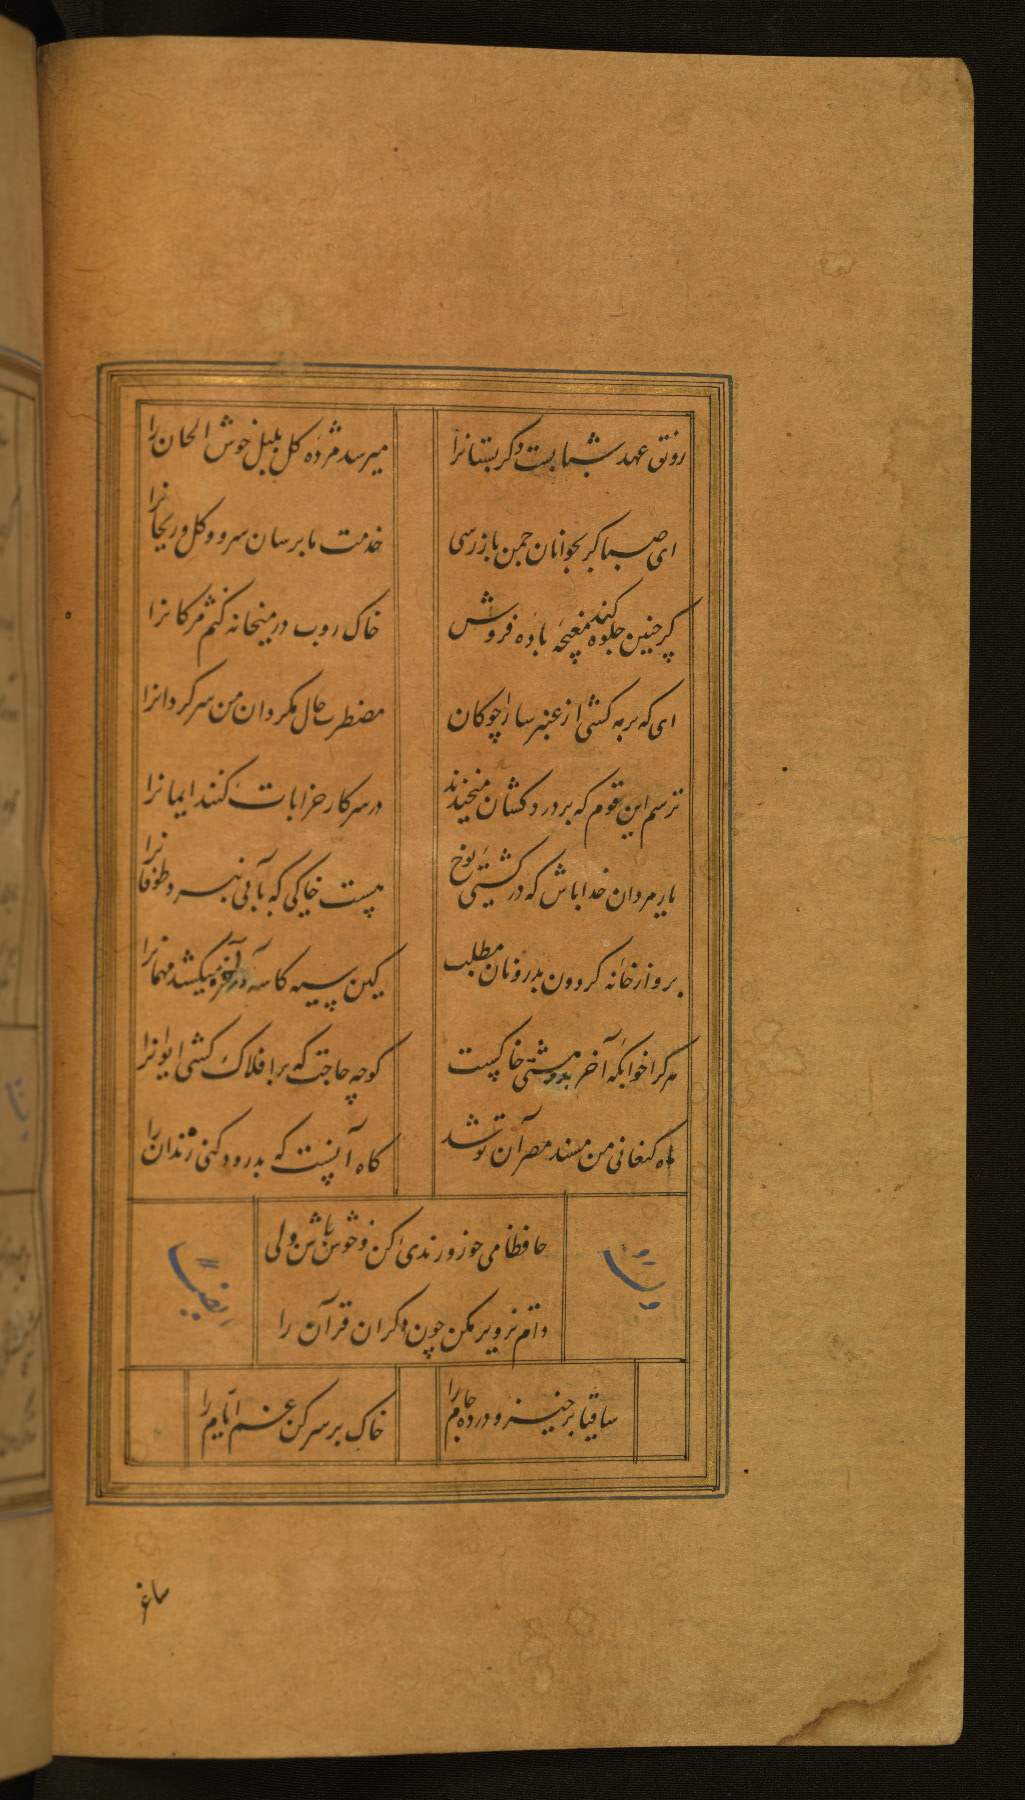 رونق عهد شبابست دکر بستانرا
میرسد مژده کل بلبل خوش الحان را
ای صبا کر بجوانان چمن باز رسی
خدمت ما برسان سرو و کل و ریحانرا
کر چنین جلوه کند مغبچه باده فروش
خاک روب در میخانه کنم مژکانرا
ای که بر مه کشی از عنبر سارا چوکان
مضطرب حال مکردان من سرکردانرا
ترسم این قوم که بر درد کشان میخندند
در سر کار خرابات کنند ایمانرا
یار مردان خدا باش که در کشتی نوح
هست خاکی که بآبی نخرد طوفانرا
برو از خانه کردون بدر و نان مطلب
کین سیه کاسه در آخر میکشد مهمانرا
هر کرا خوابکه آخر بدو مشتی خاکست
کو چه حاجت که بر افلاک کشی ایوانرا
ماه کنعانی من مسند مصر آن تو شد
کاه آنست که بدرود کنی زندان را
حافظا می خور و رندی کن و خوش باش ولی
دام تزویر مکن چون دکران قرآن را
وله
ایضا
ساقیا برخیز و در ده جام را
خاک بر سر کن غم ایام را
ساغر